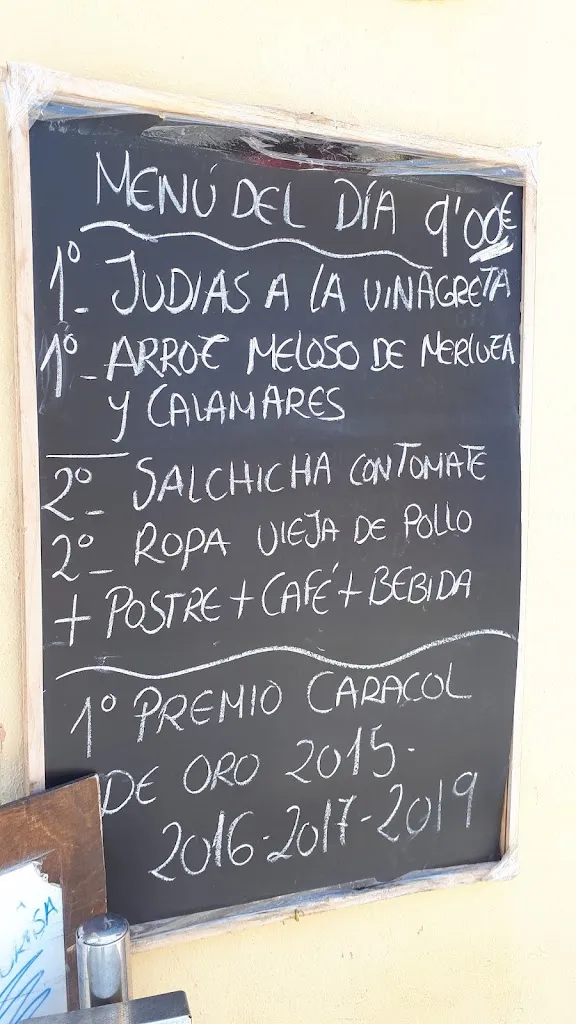 MENÚ DEL DÍA 9'00€
1º- JUDIAS A LA VINAGRETA
1º- ARROZ MELOSO DE MERLUZA
Y CALAMARES
2º- SALCHICHA CON TOMATE
2º- ROPA VIEJA DE POLLO
+ POSTRE + CAFÉ + BEBIDA
1º PREMIO CARACOL
DE ORO 2015-
2016-2017-2019